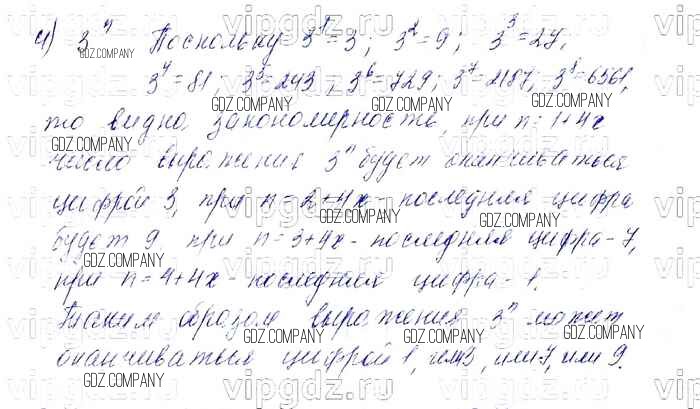 4) 3ⁿ Поскольку 3¹=3; 3²=9; 3³=27,
3⁴=81; 3⁵=243; 3⁶=729; 3⁷=2187; 3⁸=6561,
то видна закономерность, при n=1+4x
число выражения 3ⁿ будет оканчиваться
цифрой 3, при n=2+4x - последняя цифра
будет 9, при n=3+4x - последняя цифра - 7,
при n=4+4x - последняя цифра - 1.
Таким образом выражения 3ⁿ может
оканчиваться цифрой 1, или 3, или 7, или 9.
vipgdz.ru
GDZ.COMPANY